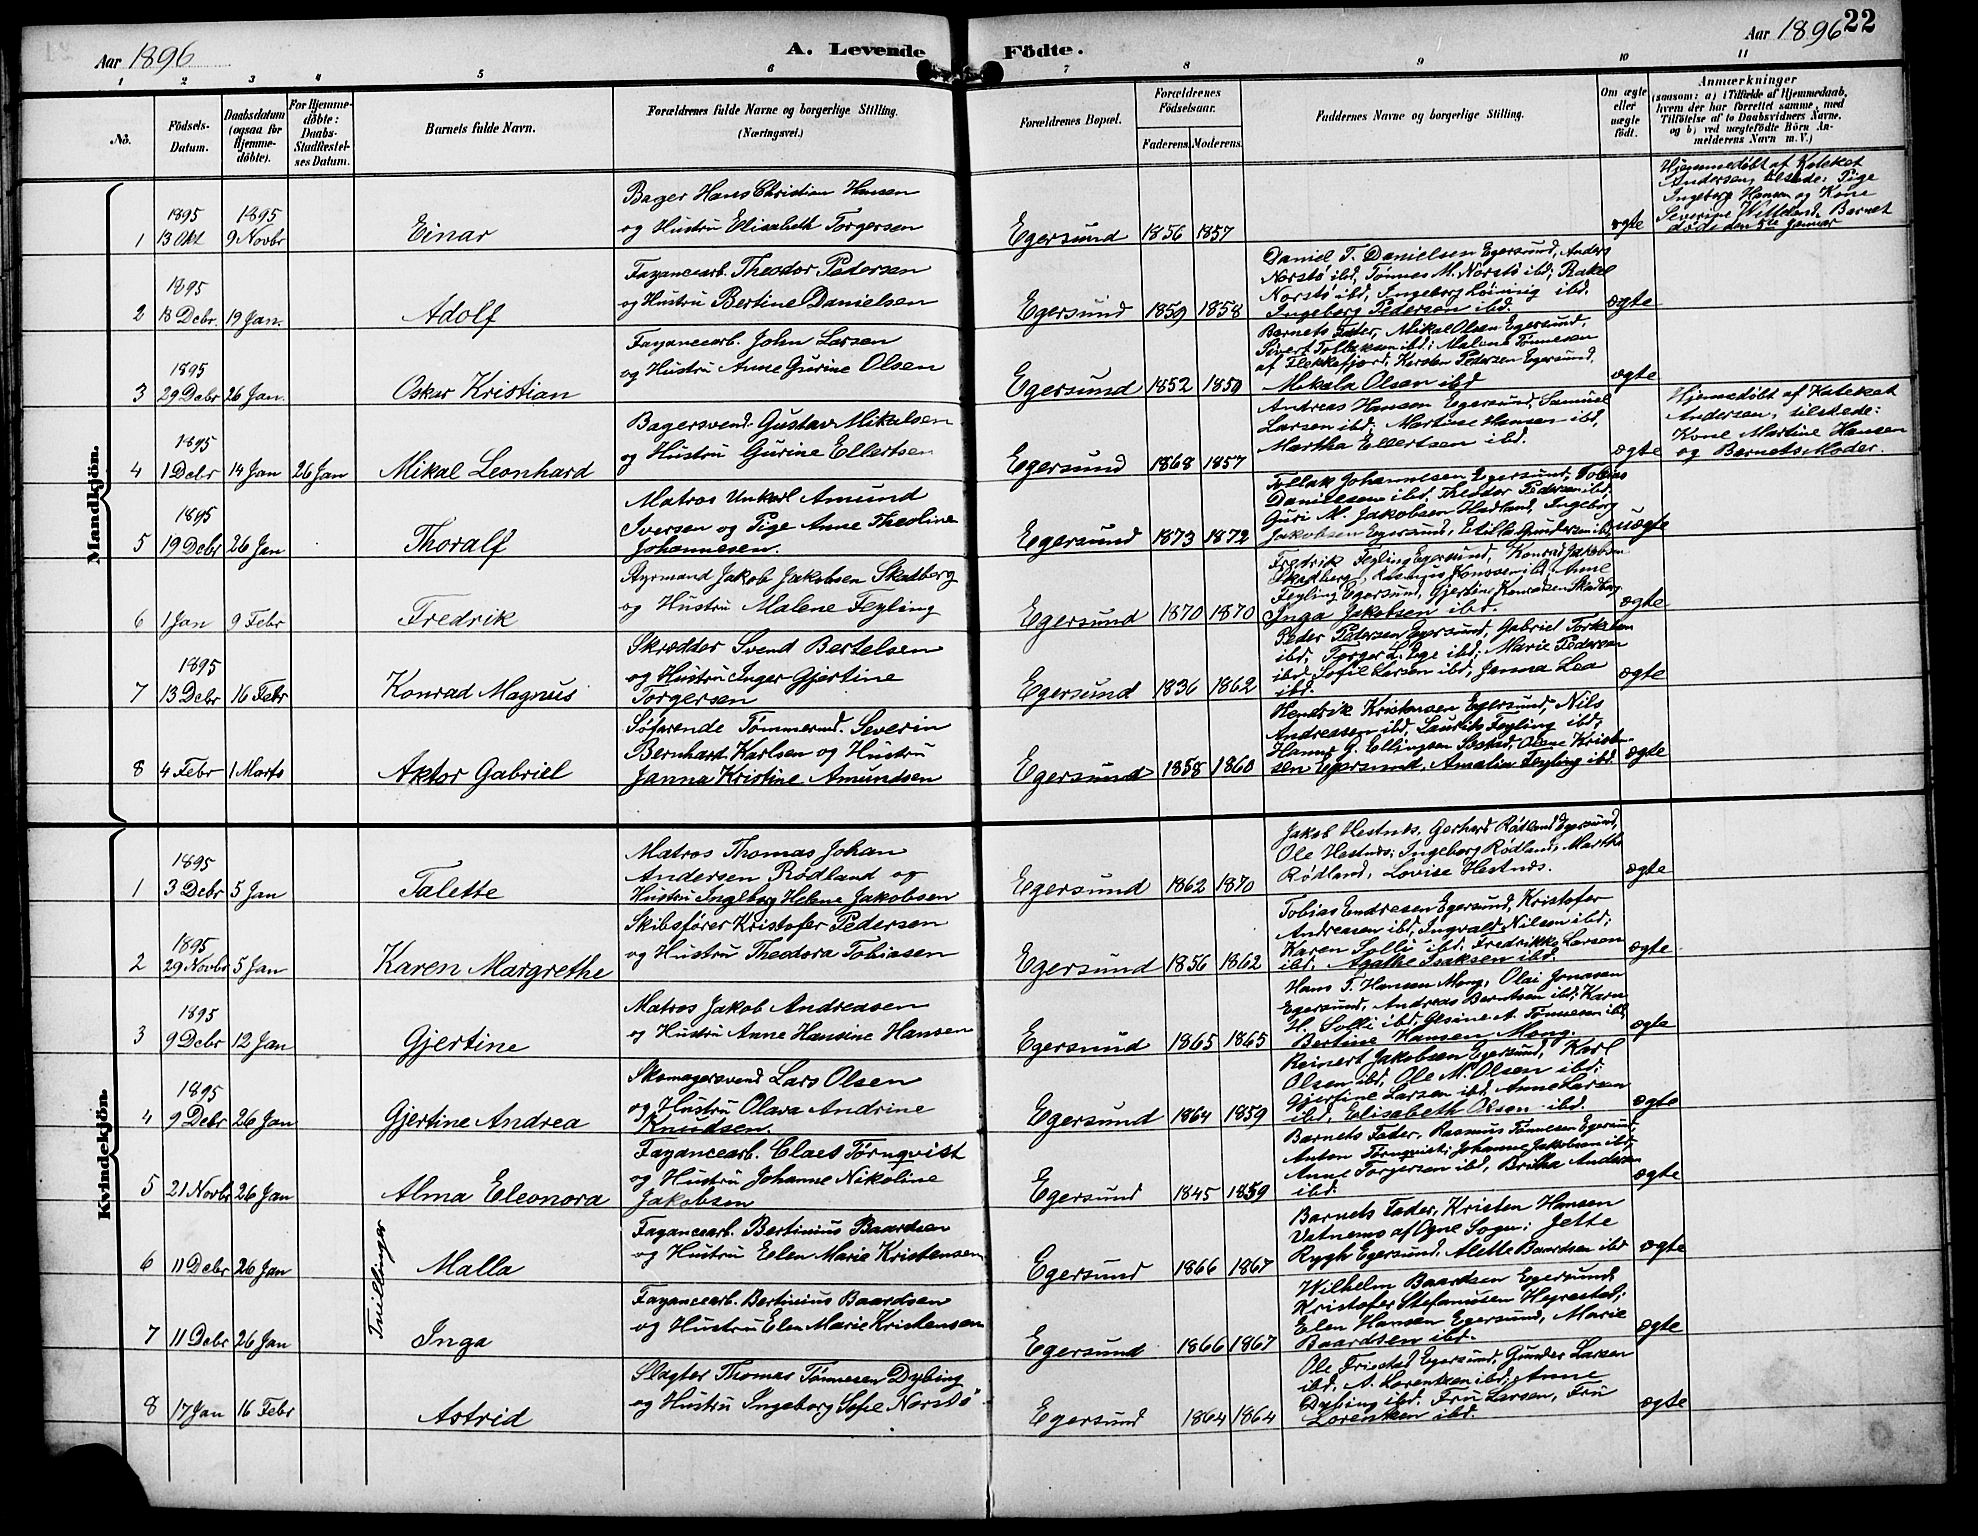 Aar 1896
A. Levende Födte.
Aar 1896
22
1 2 3 4 5 6 7 8 9 10 11
No.
Födsels-Datum.
Daabsdatum (ogsaa for Hjemmedöbte).
For Hjemmedöbte: Daabs-Stadfæstelses Datum.
Barnets fulde Navn.
Forældrenes fulde Navne og borgerlige Stilling. (Næringsvei.)
Forældrenes Bopæl.
Forældrenes Födselsaar.
Faderens. Moderens.
Faddernes Navne og borgerlige Stilling.
Om ægte eller uægte födt.
Anmærkninger
(saasom: a) i Tilfælde af Hjemmedaab, hvem der har forrettet samme, med Tilföielse af to Daabsvidners Navne, og b) ved uægtefödte Börn Anmelderens Navn m. V.)
Mandkjön.
1 1895 13 Okt 1895 9 Novbr Einar
Bager Hans Christian Hansen
og Hustru Elisabeth Torgersen
Egersund 1856 1857 ægte
Hjemmedöbt af Kateket
Andersen, tilstede: Pige
Ingeborg Hansen, Kone
Severine Barnet
döde den 5te Januar
2 1895 18 Debr. 19 Jan. Adolf
Fayancearb. Theodor Pedersen
og Hustru Bertine Danielsen
Egersund 1859 1858
Daniel T. Danielsen Egersund, Anders
Norstö ibd, Tönnes M. Norstö ibd; Rakel
Norstö ibd, Ingeborg ibd.
Ingeborg Pedersen ibd.
ægte
3 1895 29 Debr 26 Jan. Oskar Kristian
Fayancearb. John Larsen
og Hustru Anne Gurine Olsen
Egersund 1852 1850
Barnets Fader, Mikal Olsen Egersund,
Sivert Tollaksen ibd; Malene Tönnesen
af Flekkefjord, Karsten Pedersen Egersund,
Mikala Olsen ibd
ægte
4 1895 1 Debr 14 Jan 26 Jan Mikal Leonhard
Bagersvend Gustav Mikalsen
og Hustru Gurine Ellertsen
Egersund 1868 1857
Andreas Hansen Egersund, Samuel
Larsen ibd; Martine Hansen ibd,
Martha Ellertsen ibd.
ægte
Hjemmedöbt af Kateket
Andersen, tilstede:
Kone Martine Hansen
og Barnets Moder.
5 1895 19 Debr 26 Jan Thoralf
Matros Unkarl Amund
Iversen og Pige Anne Theoline
Johannesen.
Egersund 1873 1872
Tollak Johannesen Egersund, Tobias
Danielsen ibd, Theodor Pedersen ibd;
Guri M. Jakobsen Hadland, Ingeborg
Jakobsen Egersund, Gundersen ibd,
uægte
6 1 Jan 9 Febr Fredrik
Styrmand Jakob Jakobsen Skadberg
og Hustru Malene Feyling
Egersund 1870 1870
Fredrik Feyling Egersund, Konrad Jakobsen
Skadberg, Rasmus ibd; Anne
Feyling Egersund, Gjertine Konradsen Skadberg
Inga Jakobsen ibd.
ægte
7 1895 13 Debr 16 Febr Konrad Magnus
Skrædder Svend Bertelsen
og Hustru Inger Gjertine
Torgersen
Egersund 1836 1862
Peder Pedersen Egersund, Gabriel Torkelsen
ibd, Torger L. Ege ibd; Marie Pedersen
ibd, Sofie Larsen ibd, Janna Lea
ibd.
ægte
8 4 Febr 1 Marts Aktor Gabriel
Söfarende Tömmermd. Severin
Bernhard Karlsen og Hustru
Janna Kristine Amundsen
Egersund 1858 1860
Hendrik Kristensen Egersund, Nils
Andreassen ibd, Laurits Feyling ibd;
Hanne G. Ellingsen Olene Kristen-
sen Egersund, Amalia Feyling ibd
ægte
Kvindekjön.
1 1895 3 Debr 5 Jan Talette
Matros Thomas Johan
Andersen Rödland og
Hustru Ingeborg Helene Jakobsen
Egersund 1862 1870
Jakob Hestnes, Gerhard Rödland Egersund,
Ole Hestnes; Ingeborg Rödland, Martha
Rödland, Lovise Hestnes.
ægte
2 1895 29 Novbr 5 Jan Karen Margrethe
Skibsförer Kristofer Pedersen
og Hustru Theodora Tobiasen
Egersund 1856 1862
Tobias Endresen Egersund, Kristofer
Andreasen ibd, Ingvald Nilsen ibd;
Karen Solli ibd, Fredrikke Larsen
ibd, Agathe Isaksen ibd.
ægte
3 1895 9 Debr 12 Jan Gjertine
Matros Jakob Andreasen
og Hustru Anne Hansine Hansen
Egersund 1865 1865
Hans T. Hansen Mong, Olai Jonassen
Egersund, Andreas Berntsen ibd; Karen
H. Solli ibd, Gesine A. Tönnesen ibd,
Bertine Hansen Mong.
ægte
4 1895 9 Debr 26 Jan Gjertine Andrea
Skomagersvend Lars Olsen
og Hustru Olava Andrine
Knudsen.
Egersund 1864 1859
Reinert Jakobsen Egersund, Karl
Olsen ibd, Ole M. Olsen ibd;
Gjertine Larsen ibd, Anne Larsen
ibd, Elisabeth Olsen ibd.
ægte
5 21 Novbr 26 Jan Alma Eleonora
Fayancearb. Claes Törnqvist
og Hustru Johanne Nikoline
Jakobsen
Egersund 1845 1859
Barnets Fader, Rasmus Tönnesen Egersund,
Anton Törnqvist; Johanne Jakobsen ibd,
Anne Torgersen ibd, Britha Andersen
ibd.
ægte
Tvillinger
6 11 Debr 26 Jan Malla
Fayancearb. Bertinius Baardsen
og Hustru Elen Marie Kristensen
Egersund 1866 1867
Barnets Fader, Kristen Hansen
Vatnemo af Ogne Sogn; Jette
Rygh Egersund, Alette Baardsen ibd
ægte
7 11 Debr 26 Jan Inga
Fayancearb. Bertinius Baardsen
og Hustru Elen Marie Kristensen
Egersund 1866 1867
Wilhelm Baardsen Egersund,
Kristofer Stefanusen Hegrestad;
Elen Hansen Egersund, Marie
Baardsen ibd.
ægte
8 17 Jan 16 Febr Astrid
Slagter Thomas Tönnesen Dybing
og Hustru Ingeborg Sofie Norstö
Egersund 1864 1864
Ole Friestad Egersund, Gunder Larsen
ibd, A. Lorentzen ibd; Anne
Dybing ibd. Fru Larsen, Fru
Lorentzen ibd.
ægte